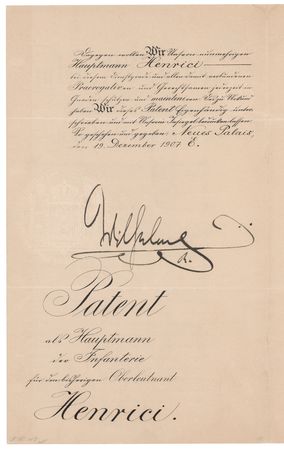 Dagegen wollen Wir Unsern nunmehrigen
Hauptmann Henrici
bei diesem Dienstgrade und allen damit verbundenen
Prärogativen und Gerechtsamen jederzeit in
Gnaden schützen und mainteniren. Dess zu Urkund
haben Wir dieses Patent Eigenhändig unter-
schrieben und mit Unserm Insiegel bedrucken lassen.
So geschehen und gegeben Neues Palais,
den 19. Dezember 1907.
Wilhelm
R.
Patent
als Hauptmann
der Infanterie
für den bisherigen Oberleutnant
Henrici.